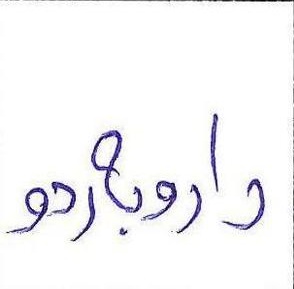 داروبەردو